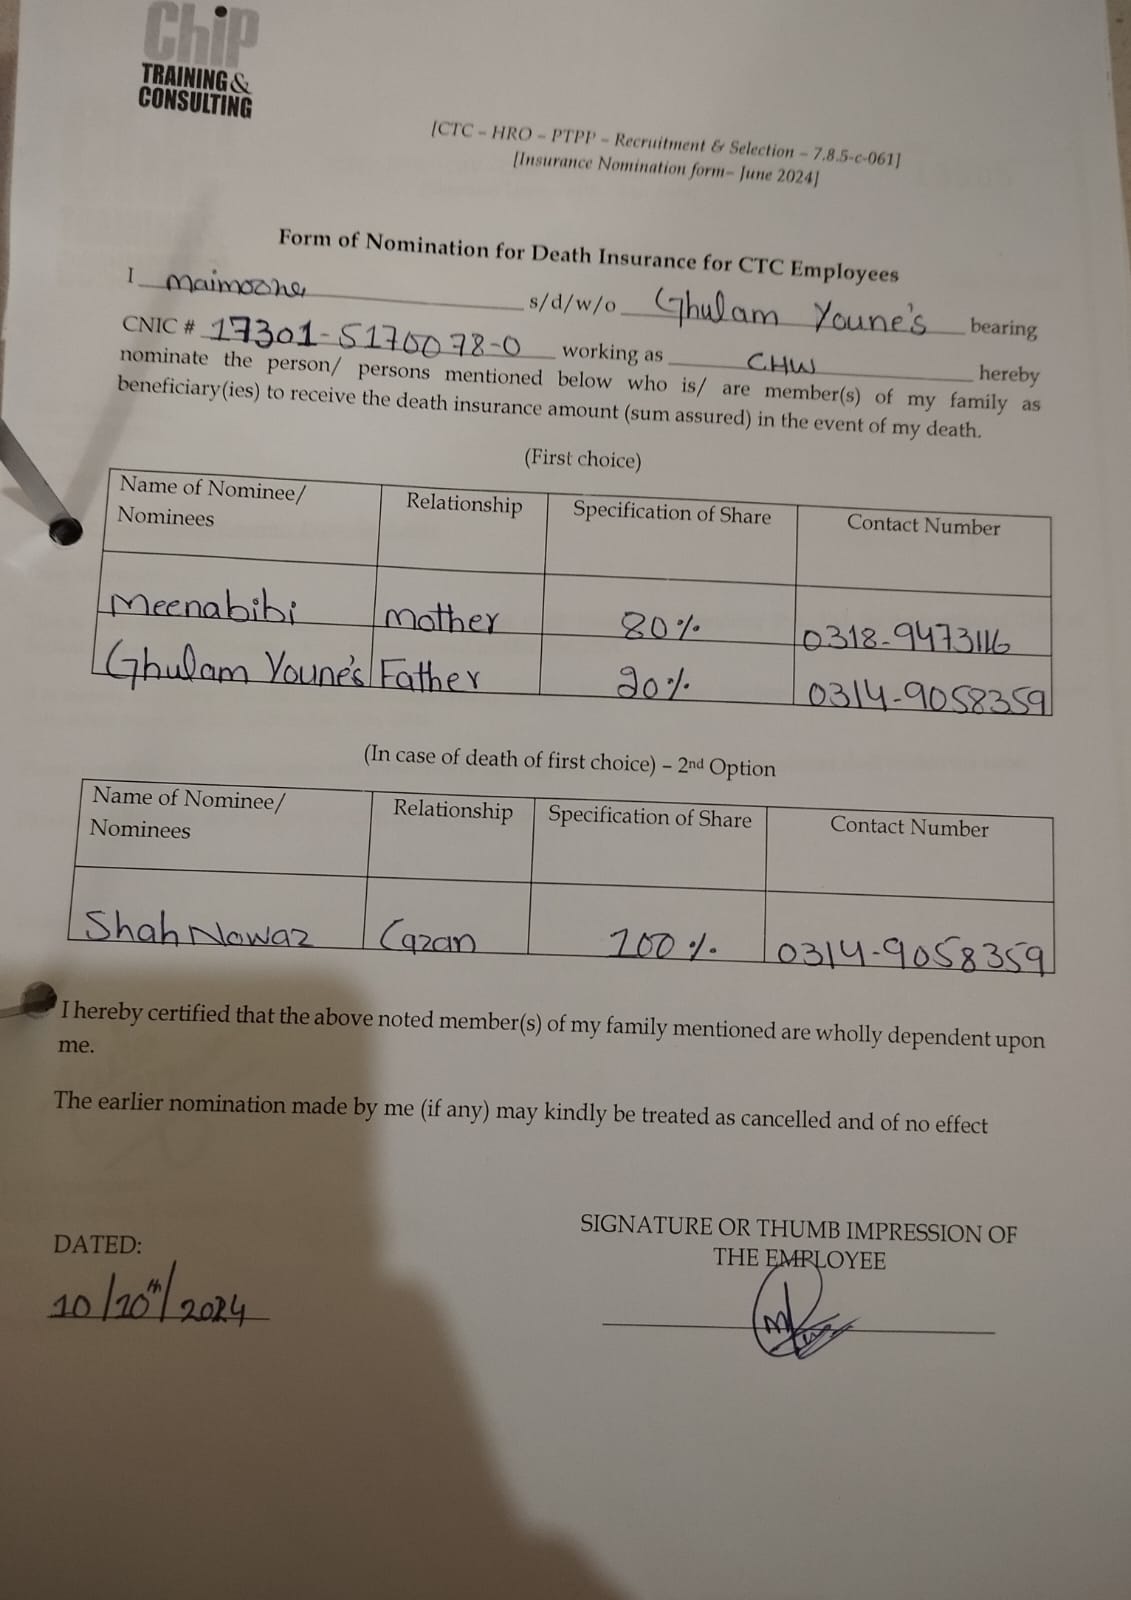 Chip
TRAINING &
CONSULTING
[CTC – HRO – PTPP – Recruitment & Selection – 7.8.5-c-061]
[Insurance Nomination form– June 2024]
Form of Nomination for Death Insurance for CTC Employees
I maimoona s/d/w/o Ghulam Youne's bearing
CNIC # 17301-5170078-0 working as CHW hereby
nominate the person/ persons mentioned below who is/ are member(s) of my family as
beneficiary(ies) to receive the death insurance amount (sum assured) in the event of my death.
(First choice)
Name of Nominee/ Relationship Specification of Share Contact Number
Nominees
Meenabibi mother 80% 0318-9473116
Ghulam Youne's Father 20% 0314-9058359
(In case of death of first choice) – 2nd Option
Name of Nominee/ Relationship Specification of Share Contact Number
Nominees
Shah Nawaz Cazan 100% 0314-9058359
I hereby certified that the above noted member(s) of my family mentioned are wholly dependent upon
me.
The earlier nomination made by me (if any) may kindly be treated as cancelled and of no effect
SIGNATURE OR THUMB IMPRESSION OF
DATED: THE EMPLOYEE
10/10th/2024